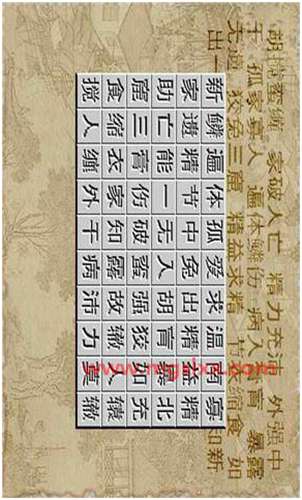 胡搅蛮缠 家破人亡 精力充沛 外强中
干 孤家寡人 遍体鳞伤 病入膏肓 暴露
无遗 狡兔三窟 精益求精 节衣缩食 如
出一 知新
新鳞遍体孤爱求温南寡
家遗精节中兔出精益
助亡能一无入胡肓暴北
窟三膏伤破蛮强狡如充
食缩衣家知露故辙人辕
搅人缠外干病沛力莫辙